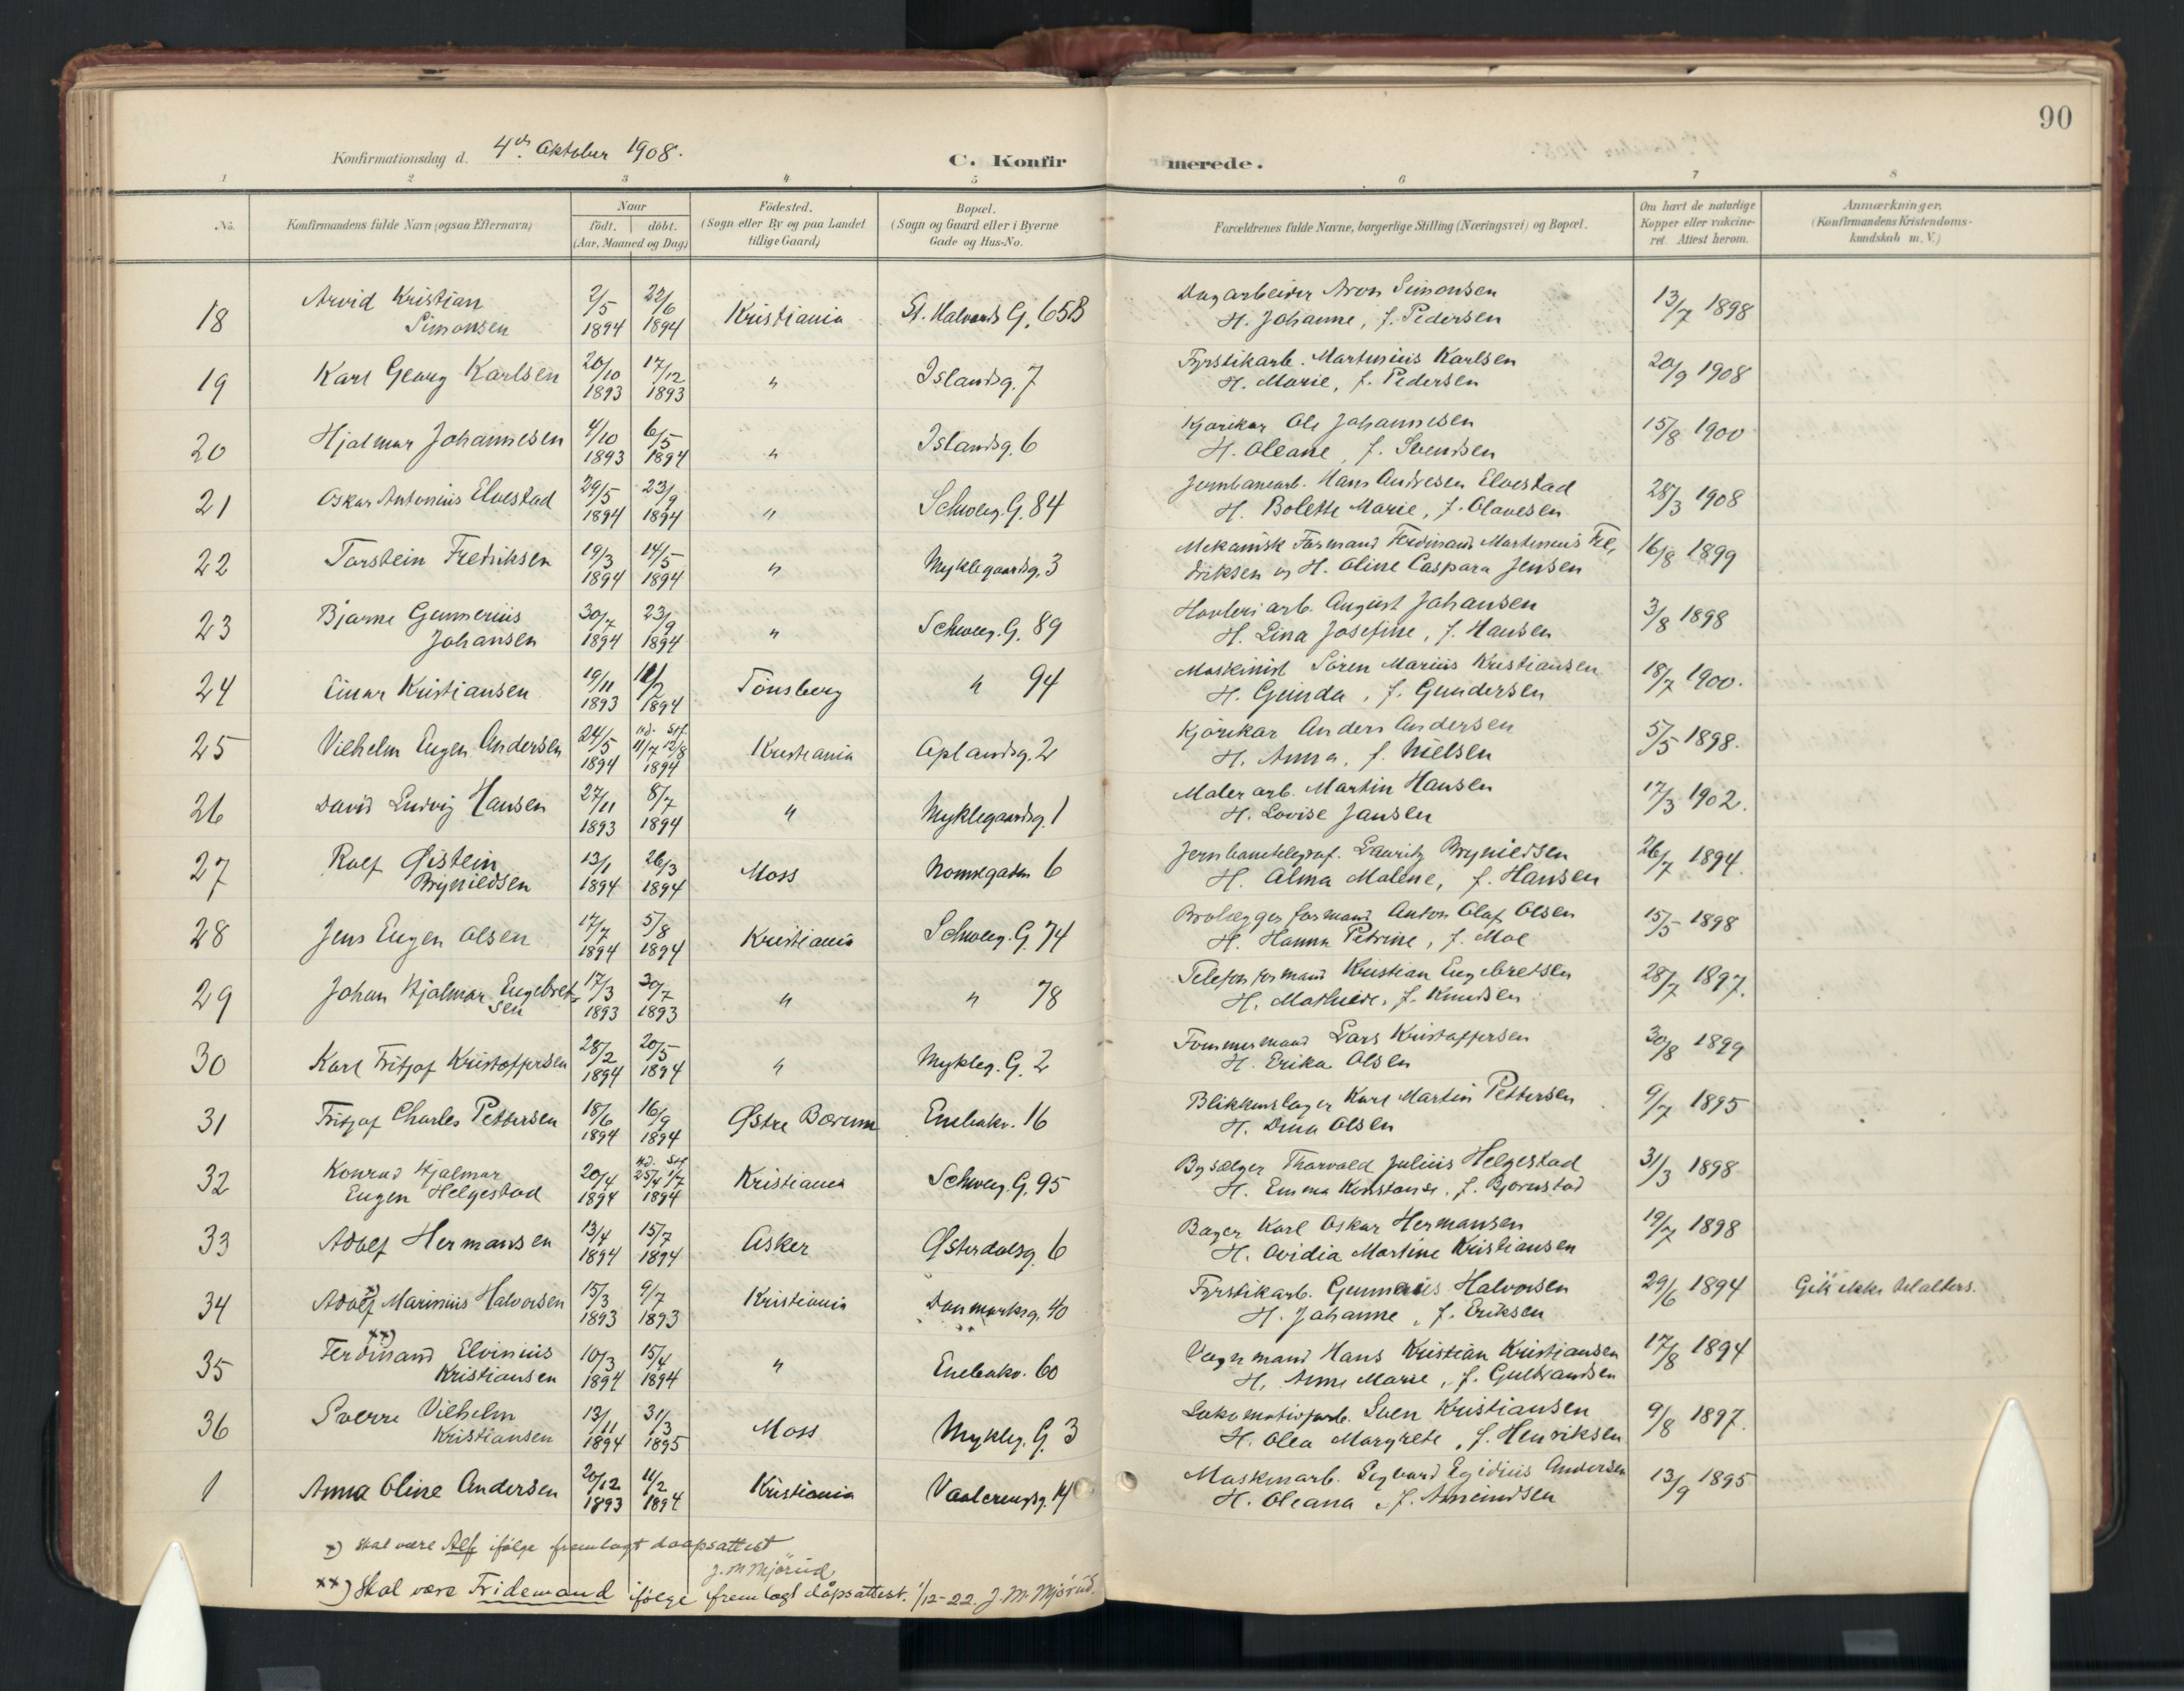 90
Konfirmationsdag d. 4de Oktober 1908.
C. Konfirmerede.
1 2 3 4 5 6 7 8
No.
Konfirmandens fulde Navn (ogsaa Efternavn)
Naar
født. döbt.
(Aar, Maaned og Dag)
Födested.
(Sogn eller By og paa Landet
tillige Gaard)
Bopæl.
(Sogn og Gaard eller i Byerne
Gade og Hus-No.
Forældrenes fulde Navne, borgerlige Stilling (Næringsvei) og Bopæl.
Om havt de naturlige
Kopper eller vakcine-
ret. Attest herom.
Anmærkninger.
(Konfirmandens Kristendoms-
kundskab m. V.)
18 Arvid Kristian Simonsen 2/5 1894 22/6 1894 Kristiania St. Halvards G. 65B Dagarbeider Aron Simonsen 13/7 1898
H. Johanne, f. Pedersen
19 Karl Georg Karlsen 20/10 1893 17/12 1893 " Islandsg. 7 Fyrstikarb. Martinius Karlsen 20/9 1908
H. Marie, f. Pedersen
20 Hjalmar Johannesen 4/10 1893 6/5 1894 " Islandsg. 6 Kjørekar Ole Johannesen 15/8 1900
H. Oleane, f. Svendsen
21 Oskar Antonius Elvestad 29/5 1894 23/9 1894 " Schweg. G. 84 Jernbanearb. Hans Andresen Elvestad 28/3 1908
H. Bolette Marie, f. Olavesen
22 Torstein Fredriksen 19/3 1894 14/5 1894 " Myklegaardsg. 3 Mekanisk Formand Ferdinand Martinius Fre-
driksen og H. Oline Caspara Jensen 16/8 1899
23 Bjarne Gunnerius Johansen 30/7 1894 23/9 1894 " Schweg. G. 89 Høvleriarb. August Johansen 3/8 1898
H. Lina Josefine, f. Hansen
24 Einar Kristiansen 19/11 1893 11/2 1894 Tönsberg " 94 Maskinist Sören Marius Kristiansen 18/7 1900.
H. Gunda, f. Gundersen
25 Vilhelm Eugen Andersen 24/5 1894 nd. 11/7 Stf. 12/8 1894 Kristiania Oplandsg. 2 Kjörekar Anders Andersen 5/5 1898.
H. Anna, f. Nielsen
26 David Ludvig Hansen 27/11 1893 8/7 1894 " Myklegaardsg. 1 Malerarb. Martin Hansen 17/3 1902.
H. Lovise Jansen
27 Rolf Øistein Brynildsen 13/1 1894 26/3 1894 Moss Nonnegaden 6 Jernbanetelegraf. Lauritz Brynildsen 26/7 1894.
H. Alma Malene, f. Hansen
28 Jens Eugen Olsen 17/7 1894 5/8 1894 Kristiania Schweg. G. 74 Brolæggerformand Anton Olaf Olsen 15/5 1898
H. Hanna Petrine, f. Moe
29 Johan Hjalmar Engebret-
sen 17/3 1893 30/7 1893 " " 78 Telefonformand Kristian Engebretsen 28/7 1897.
H. Mathilde, f. Knudsen
30 Karl Fritjof Kristoffersen 28/2 1894 20/5 1894 " Mykleg. G. 2 Tømmermand Lars Kristoffersen 30/8 1899
H. Erika Olsen
31 Fritjof Charles Pettersen 18/6 1894 16/9 1894 Østre Bærum Enebakv. 16 Blikkenslager Karl Martin Pettersen 9/7 1895
H. Dina Olsen
32 Konrad Hjalmar Eugen Helgestad 20/4 1894 nd. 25/4 Stf. 1/7 1894 Kristiania Schweg. G. 95 Bysælger Thorvald Julius Helgestad 31/3 1898
H. Emma Konstanse, f. Bjørnstad
33 Adolf Hermansen 13/4 1894 15/7 1894 Asker Østerdalsg. 6 Bager Karl Oskar Hermansen 19/7 1898
H. Ovidia Martine Kristiansen
34 Adolf x) Marinius Halvorsen 15/3 1893 9/7 1893 Kristiania Danmarksg. 40 Fyrstikarb. Gunnerius Halvorsen 29/6 1894 Gik ikke til alters.
H. Johanne, f. Eriksen
35 Ferdinand xx) Elvinius Kristiansen 10/3 1894 15/4 1894 " Enebakv. 60 Vognmand Hans Kristian Kristiansen 17/8 1894
H. Anne Marie, f. Gulbrandsen
36 Sverre Vilhelm Kristiansen 13/11 1894 31/3 1895 Moss Mykleg. G. 3 Lokomotivfyrb. Sven Kristiansen 9/8 1897.
H. Olea Margrete, f. Henriksen
1 Anna Oline Andersen 20/12 1893 11/2 1894 Kristiania Vaalerengg. 14 Maskinarb. Sigvard Egidius Andersen 13/9 1895
H. Oleana, f. Amundsen
x) skal være Alf ifølge fremlagt daapsattest
J. M. Mjørud
xx) Skal være Fridemand ifølge fremlagt dåpsattest. 1/12-22. J. M. Mjørud.